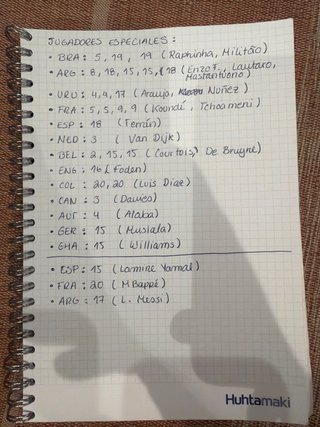 JUGADORES ESPECIALES:
• BRA: 5, 19, 19 (Raphinha, Militão)
• ARG: 8, 18, 15, 15, 18 (Enzo F., Lautaro,
Mastantuono)
• URU: 4, 4, 17 (Araujo, Nuñez)
• FRA: 5, 5, 9, 9 (Koundé, Tchoameni)
• ESP: 18 (Ferrán)
• NED: 3 (Van Dijk)
• BEL: 2, 15, 15 (Courtois, De Bruyne)
• ENG: 16 (Foden)
• COL: 20, 20 (Luis Díaz)
• CAN: 3 (Davies)
• AUT: 4 (Alaba)
• GER: 15 (Musiala)
• GHA: 15 (Williams)
• ESP: 15 (Lamine Yamal)
• FRA: 20 (MBappé)
• ARG: 17 (L. Messi)
Huhtamaki